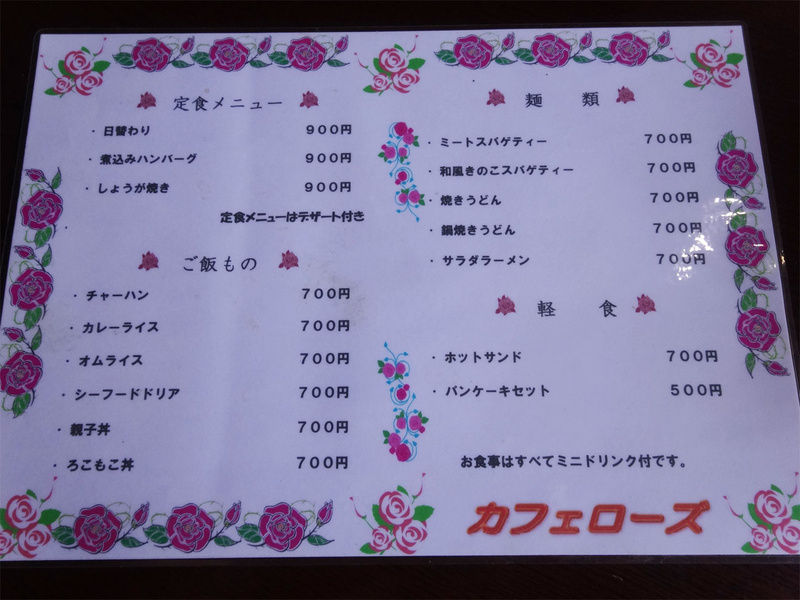 定食メニュー
・日替わり 900円
・煮込みハンバーグ 900円
・しょうが焼き 900円
定食メニューはデザート付き
ご飯もの
・チャーハン 700円
・カレーライス 700円
・オムライス 700円
・シーフードドリア 700円
・親子丼 700円
・ろこもこ丼 700円
麺 類
・ミートスパゲティー 700円
・和風きのこスパゲティー 700円
・焼きうどん 700円
・鍋焼きうどん 700円
・サラダラーメン 700円
軽 食
・ホットサンド 700円
・パンケーキセット 500円
お食事はすべてミニドリンク付です。
カフェローズ